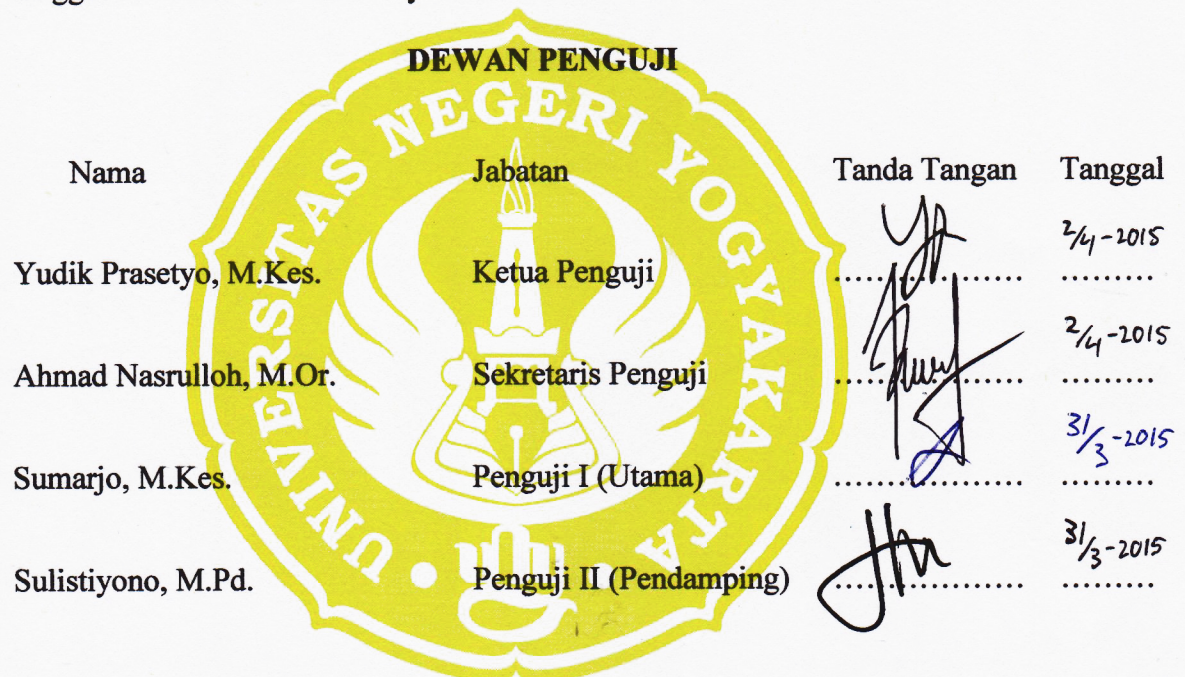 DEWAN PENGUJI
UNIVERSITAS NEGERI YOGYAKARTA
Nama Jabatan Tanda Tangan Tanggal
Yudik Prasetyo, M.Kes. Ketua Penguji .................. ......... 2/4-2015
Ahmad Nasrulloh, M.Or. Sekretaris Penguji .................. ......... 2/4-2015
Sumarjo, M.Kes. Penguji I (Utama) .................. ......... 31/3-2015
Sulistiyono, M.Pd. Penguji II (Pendamping) .................. ......... 31/3-2015